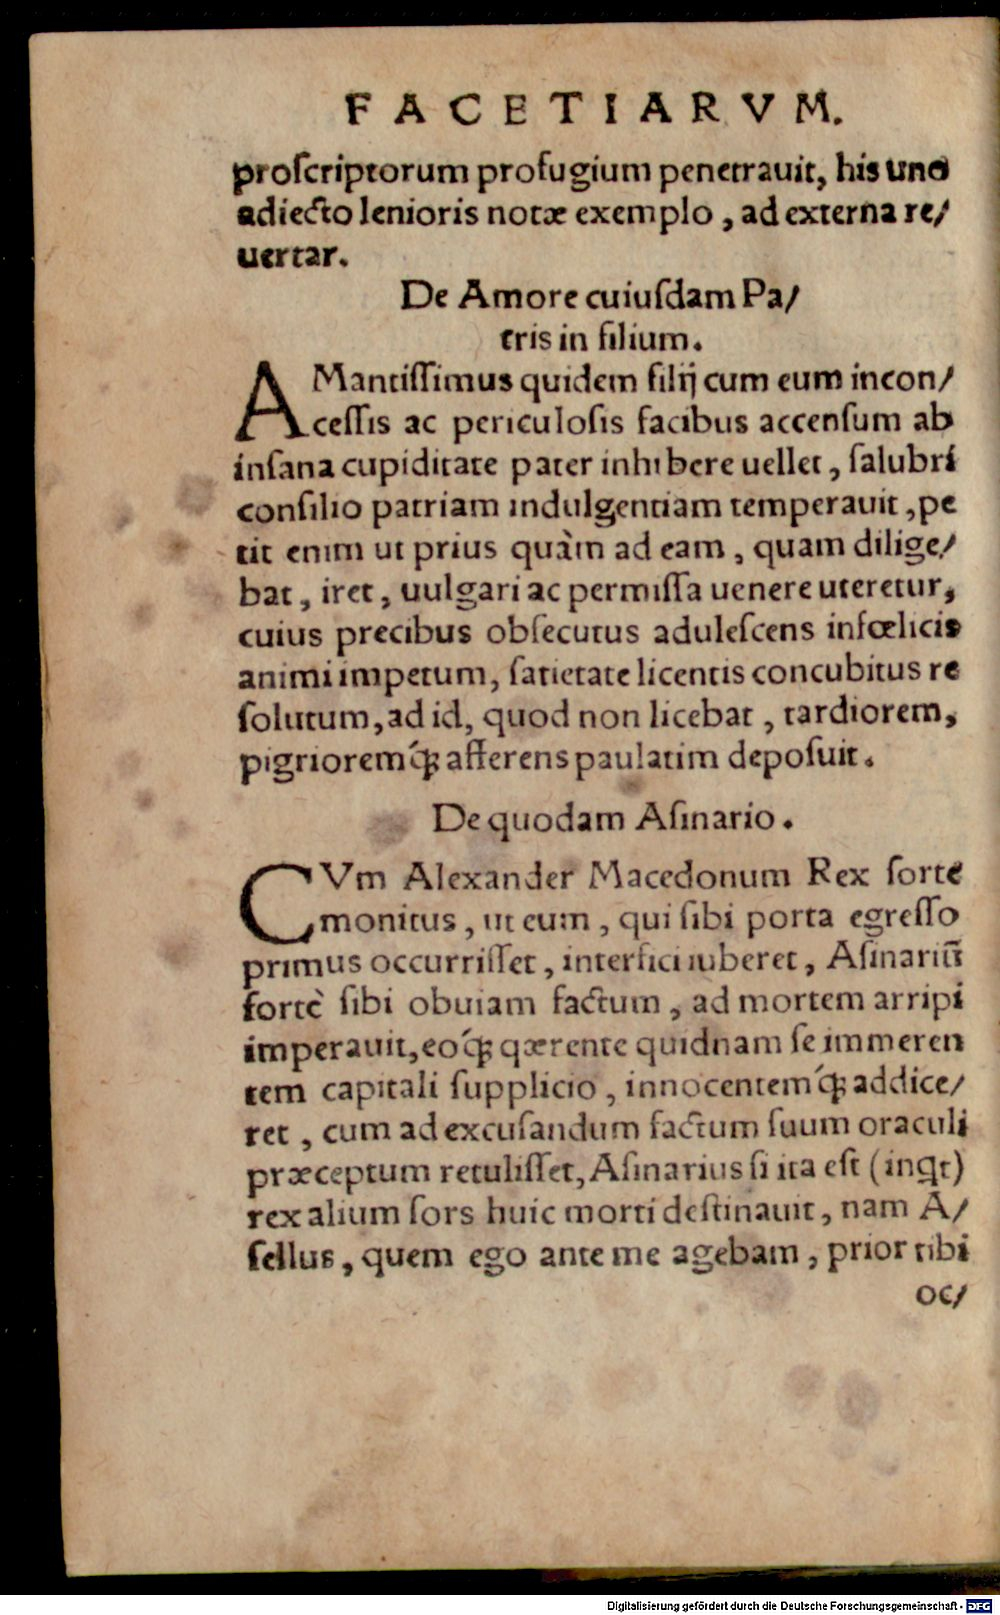 FACETIARVM.
proſcriptorum profugium penetrauit, his uno
adiecto lenioris notæ exemplo, ad externa re/
uertar.
De Amore cuiuſdam Pa/
tris in filium.
AMantiſſimus quidem filij cum eum incon/
ceſſis ac periculoſis facibus accenſum ab
inſana cupiditate pater inhibere uellet, ſalubri
conſilio patriam indulgentiam temperauit, pe
tit enim ut prius quàm ad eam, quam dilige/
bat, iret, uulgari ac permiſſa uenere uteretur,
cuius precibus obſecutus aduleſcens infœlicis
animi impetum, ſatietate licentis concubitus re
ſolutum, ad id, quod non licebat, tardiorem,
pigrioremq́ꝫ afferens paulatim depoſuit.
De quodam Aſinario.
CVm Alexander Macedonum Rex ſorte
monitus, ut eum, qui ſibi porta egreſſo
primus occurriſſet, interfici iuberet, Aſinariũ
fortè ſibi obuiam factum, ad mortem arripi
imperauit, eoq́ꝫ qærente quidnam ſe immeren
tem capitali ſupplicio, innocentemq́ꝫ addice/
ret, cum ad excuſandum factum ſuum oraculi
præceptum retuliſſet, Aſinarius ſi ita eſt (inqt)
rex alium ſors huic morti deſtinauit, nam A/
ſellus, quem ego ante me agebam, prior tibi
oc/
Digitalisierung gefördert durch die Deutsche Forschungsgemeinschaft - DFG